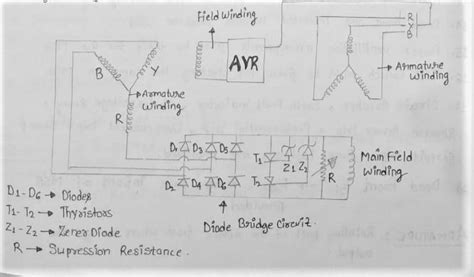 Field Winding
AVR
R
Y
B
Armature
Winding
B
Y
R
Armature
Winding
D1 D3 D5
D2 D4 D6
T1
T2
Z1 Z2
R
Main Field
Winding
Diode Bridge Circuit.
D1 - D6 → Diodes
T1 - T2 → Thyristors
Z1 - Z2 → Zener Diode
R → Supression Resistance.